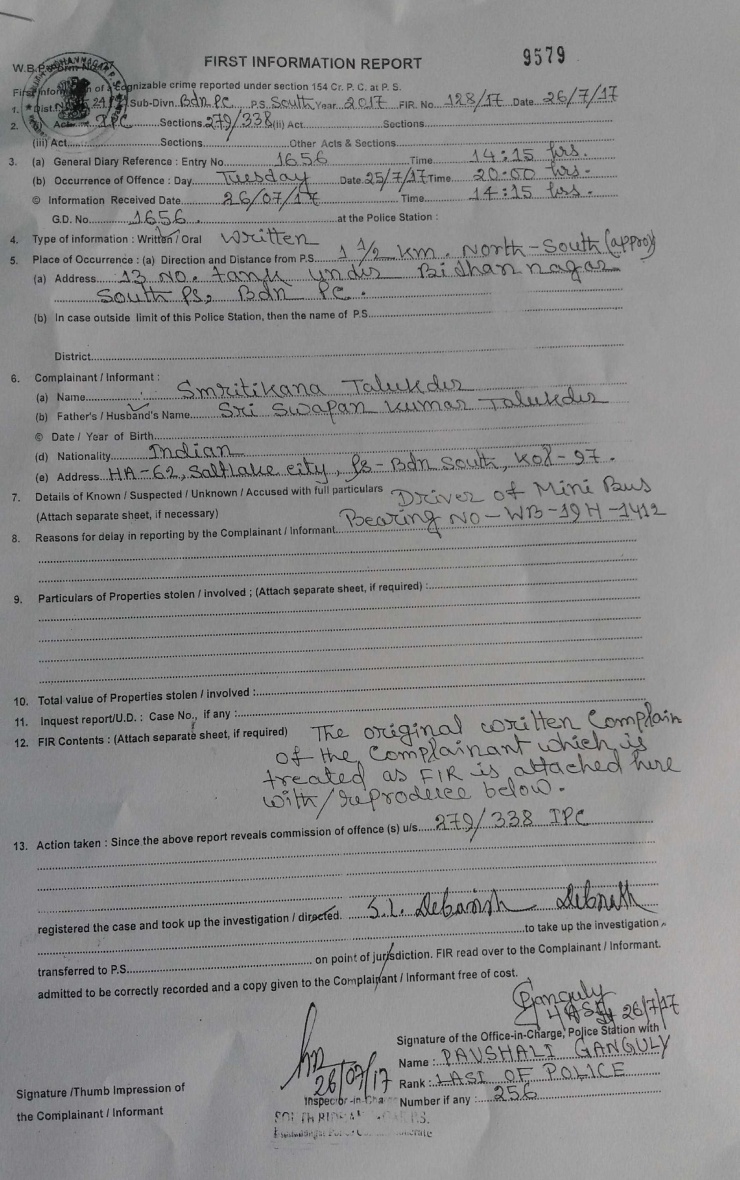 FIRST INFORMATION REPORT
9579
W.B.P. Form No.
First Inform n of a Cognizable crime reported under section 154 Cr. P. C. at P. S.
1. Dist. N 24 Sub-Divn. Bdn PC P.S. South Year 2017 FIR. No. 128/17 Date 26/7/17
2. Act IPC Sections 279/338 (ii) Act Sections
(iii) Act Sections Other Acts & Sections
3. (a) General Diary Reference : Entry No. 1656 Time 14:15 hrs.
(b) Occurrence of Offence : Day Tuesday Date 25/7/17 Time 20:00 hrs.
© Information Received Date 26/07/17 Time 14:15 hrs.
G.D. No. 1656 at the Police Station :
4. Type of information : Written / Oral Written
5. Place of Occurrence : (a) Direction and Distance from P.S. 1 1/2 km. North-South (appro)
(a) Address 13 NO. tank under Bidhannagar
South PS, Bdn PC.
(b) In case outside limit of this Police Station, then the name of P.S.
District
6. Complainant / Informant :
(a) Name Smritikana Talukder
(b) Father's / Husband's Name Sri Swapan Kumar Talukder
© Date / Year of Birth
(d) Nationality Indian
(e) Address HA-62, Saltlake city, PS- Bdn South, Kol-97.
7. Details of Known / Suspected / Unknown / Accused with full particulars Driver of Mini Bus
(Attach separate sheet, if necessary) Bearing NO-WB-19H-1412
8. Reasons for delay in reporting by the Complainant / Informant
9. Particulars of Properties stolen / involved ; (Attach separate sheet, if required) :
10. Total value of Properties stolen / involved :
11. Inquest report/U.D. : Case No., if any :
12. FIR Contents : (Attach separate sheet, if required) The original written Complain
of the Complainant which is
treated as FIR is attached here
with/reproduce below.
13. Action taken : Since the above report reveals commission of offence (s) u/s. 279/338 IPC
registered the case and took up the investigation / directed. S.I. Debasish Debnath
to take up the investigation
transferred to P.S. on point of jurisdiction. FIR read over to the Complainant / Informant.
admitted to be correctly recorded and a copy given to the Complainant / Informant free of cost.
PGanguly
LASI 26/7/17
Signature of the Office-in-Charge, Police Station with
Name : PAUSHALI GANGULY
Rank : LASI OF POLICE
Number if any : 256
26/07/17
Inspector-in-Cha
SOUTH P.S.
Signature /Thumb Impression of
the Complainant / Informant